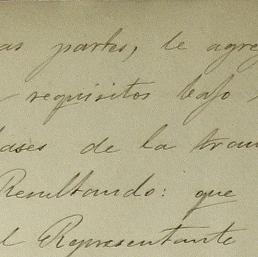 as partes, le agre
requisitos bajo
bases de la tran
Resultando: que
el Representante